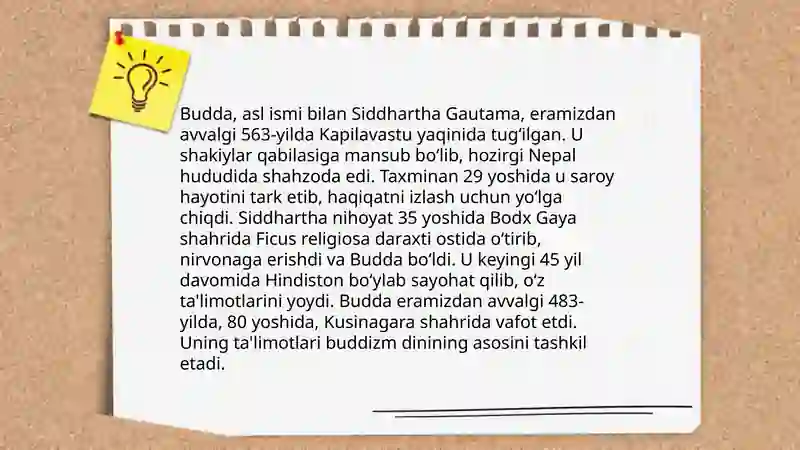 Budda, asl ismi bilan Siddhartha Gautama, eramizdan
avvalgi 563-yilda Kapilavastu yaqinida tugʻilgan. U
shakiylar qabilasiga mansub boʻlib, hozirgi Nepal
hududida shahzoda edi. Taxminan 29 yoshida u saroy
hayotini tark etib, haqiqatni izlash uchun yoʻlga
chiqdi. Siddhartha nihoyat 35 yoshida Bodx Gaya
shahrida Ficus religiosa daraxti ostida oʻtirib,
nirvonaga erishdi va Budda boʻldi. U keyingi 45 yil
davomida Hindiston boʻylab sayohat qilib, oʻz
ta'limotlarini yoydi. Budda eramizdan avvalgi 483-
yilda, 80 yoshida, Kusinagara shahrida vafot etdi.
Uning ta'limotlari buddizm dinining asosini tashkil
etadi.